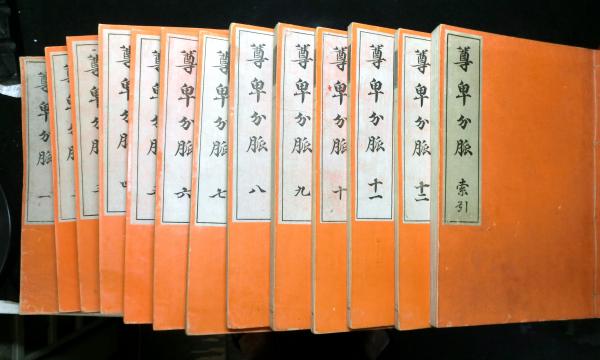 尊卑分脈 一
尊卑分脈 二
尊卑分脈 三
尊卑分脈 四
尊卑分脈 五
尊卑分脈 六
尊卑分脈 七
尊卑分脈 八
尊卑分脈 九
尊卑分脈 十
尊卑分脈 十一
尊卑分脈 十二
尊卑分脈 索引